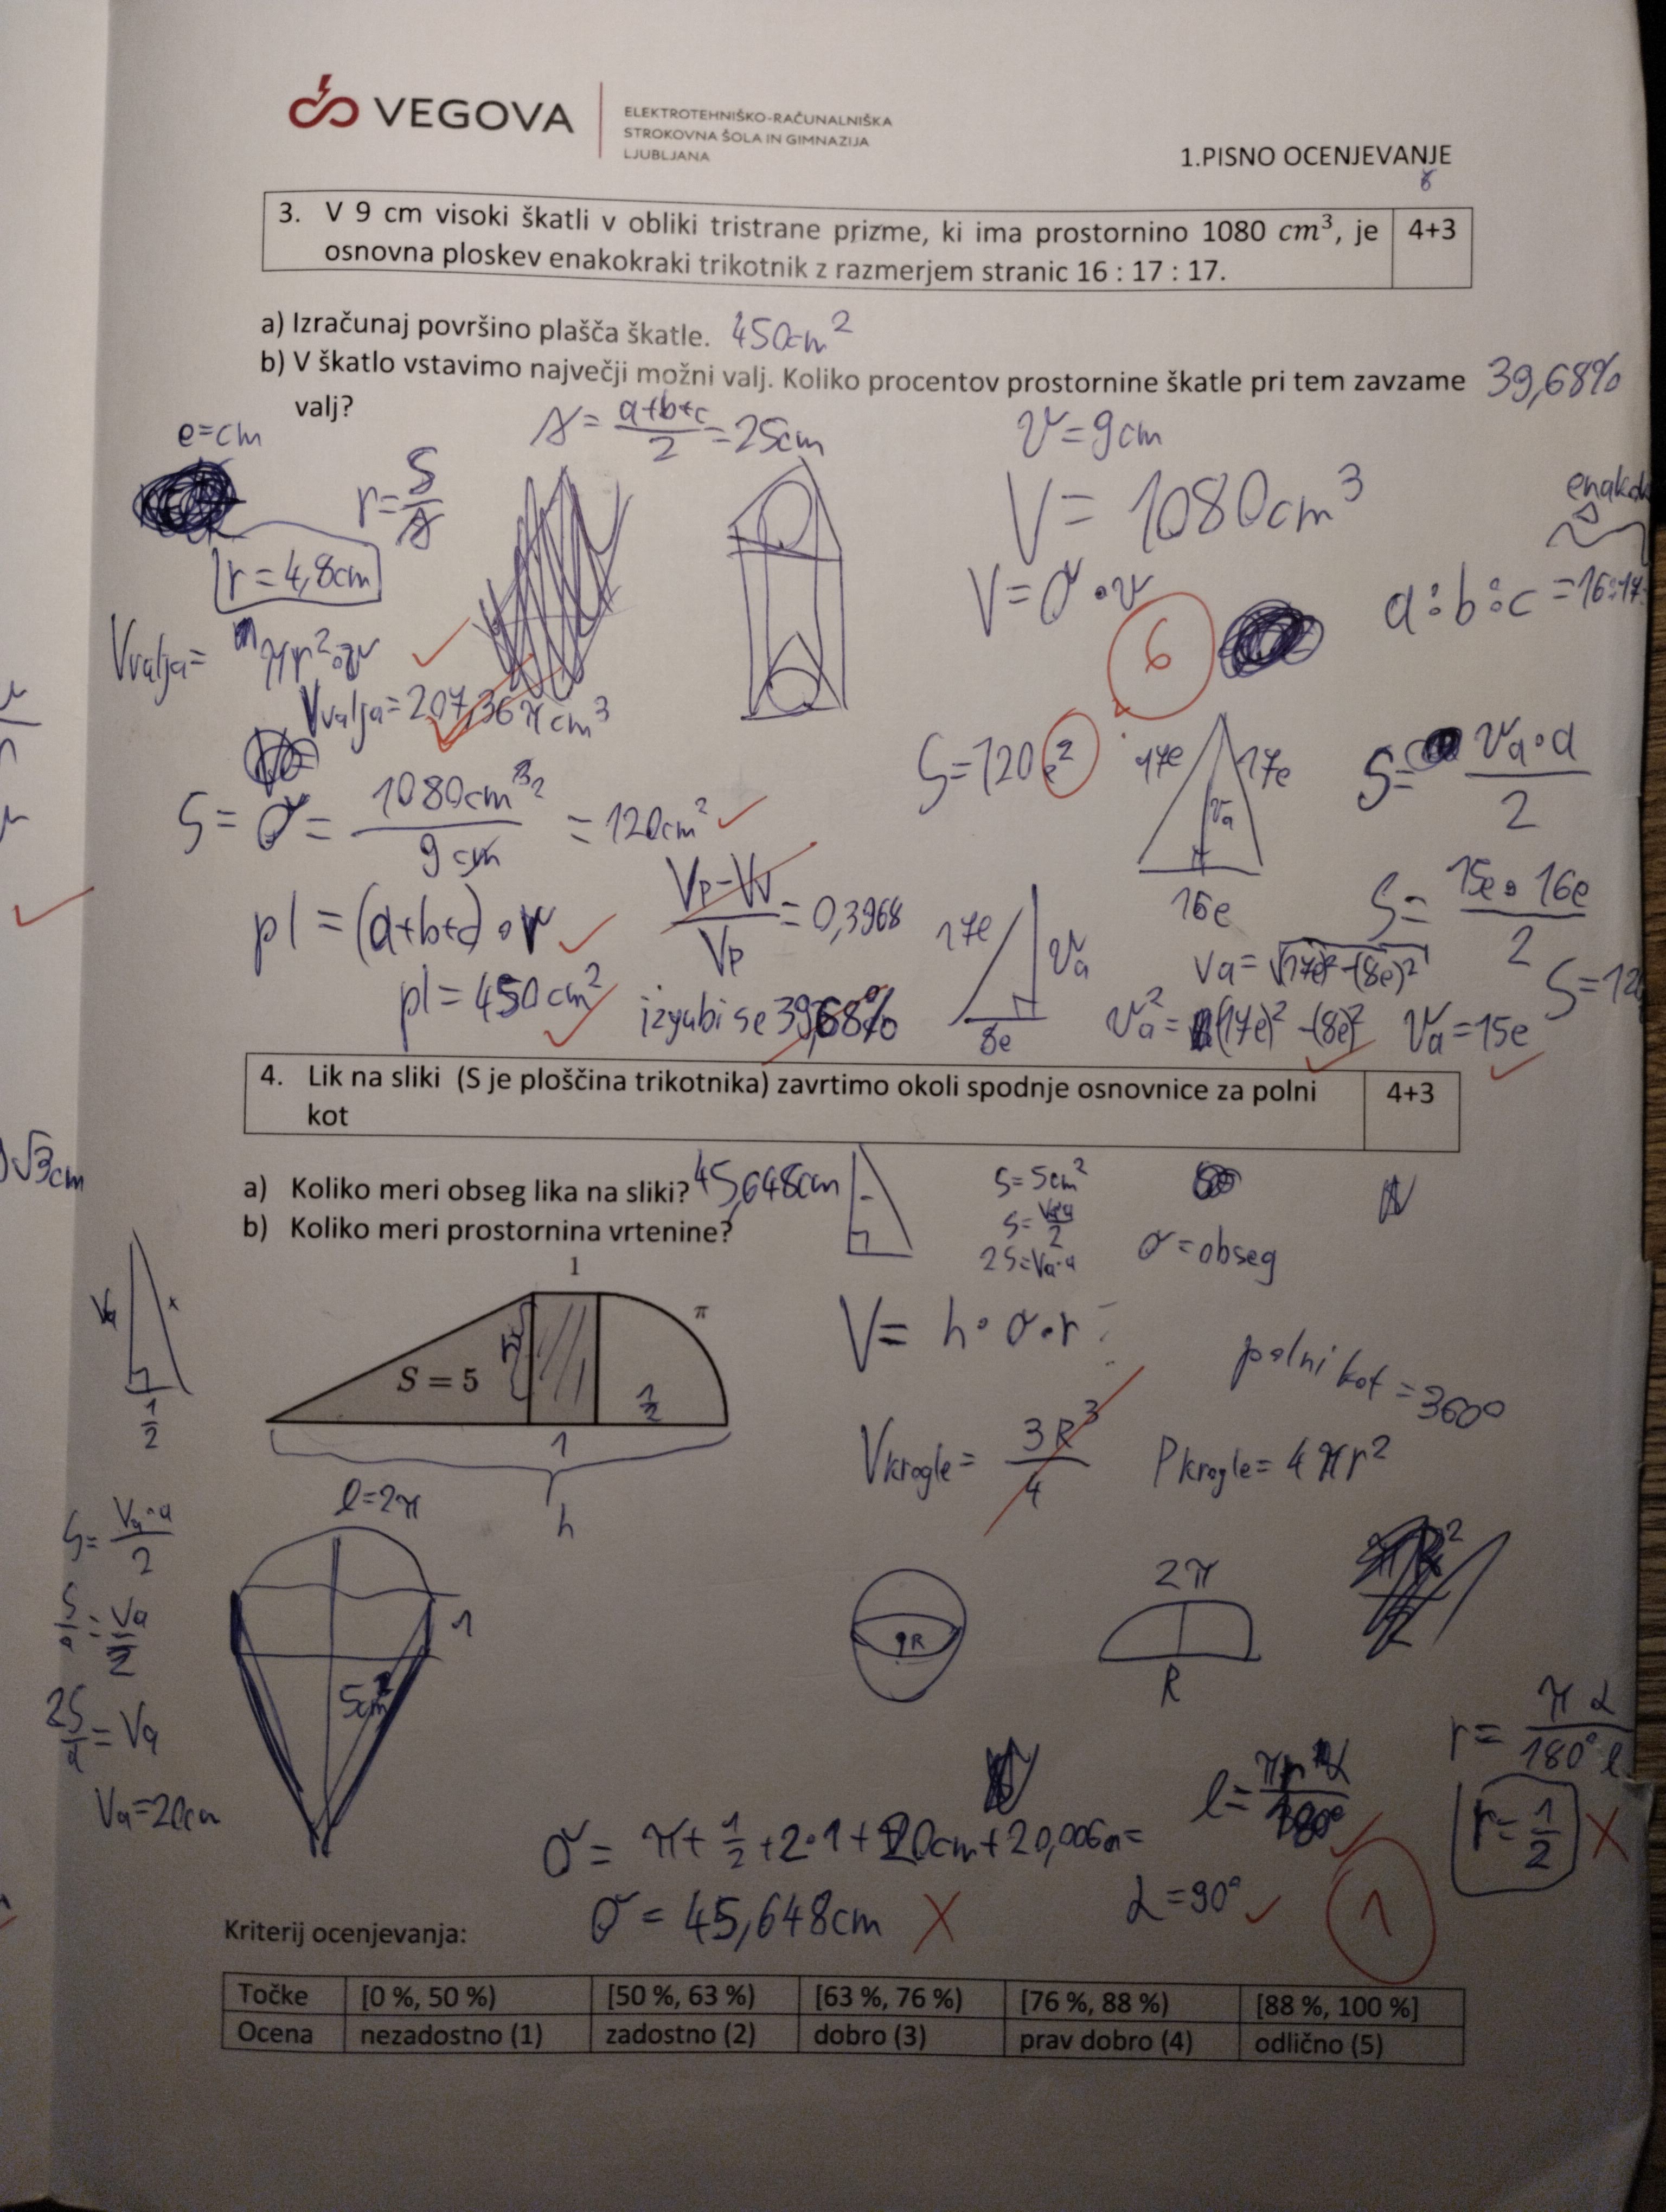 VEGOVA
ELEKTROTEHNIŠKO-RAČUNALNIŠKA
STROKOVNA ŠOLA IN GIMNAZIJA
LJUBLJANA
1.PISNO OCENJEVANJE
3. V 9 cm visoki škatli v obliki tristrane prizme, ki ima prostornino 1080 cm³, je
osnovna ploskev enakokraki trikotnik z razmerjem stranic 16 : 17 : 17.
4+3
a) Izračunaj površino plašča škatle. 450cm²
b) V škatlo vstavimo največji možni valj. Koliko procentov prostornine škatle pri tem zavzame
valj?
39,68%
e=cm
s = (a+b+c)/2 = 25cm
v = 9cm
r = S/s
V = 1080cm³
r = 4,8cm
V = O·v
a:b:c = 16:17:
Vvalja = πr²·v
6
Vvalja = 207,36π cm³
S = 120e²
17e
17e
va
16e
S = va·a/2
S = O = 1080cm³/9cm = 120cm²
S = 15e·16e/2
pl = (a+b+c)·v
Vp-Vv/Vp = 0,3968
17e
va
8e
va = √(17e)²-(8e)²
pl = 450cm²
izgubi se 39,68%
va² = (17e)²-(8e)²
va = 15e
4. Lik na sliki (S je ploščina trikotnika) zavrtimo okoli spodnje osnovnice za polni
kot
4+3
√3cm
a) Koliko meri obseg lika na sliki? 45,648cm
b) Koliko meri prostornina vrtenine?
S=5cm²
S=va·a/2
2S=va·a
o = obseg
1
π
S = 5
1/2
1
h
V = h·o·r
polni kot = 360°
Va
x
1/2
Vkrogle = 3R³/4
Pkrogle = 4πr²
l=2π
S = Va·a/2
S/a = Va/2
2S/a = Va
Va=20cm
1
5cm²
R
2π
R
r = πα/180°l
r = 1/2
l =
o = π + 1/2 + 2·1 + 20cm + 20,006 =
o = 45,648cm
α = 90°
1
Kriterij ocenjevanja:
Točke [0 %, 50 %) [50 %, 63 %) [63 %, 76 %) [76 %, 88 %) [88 %, 100 %]
Ocena nezadostno (1) zadostno (2) dobro (3) prav dobro (4) odlično (5)